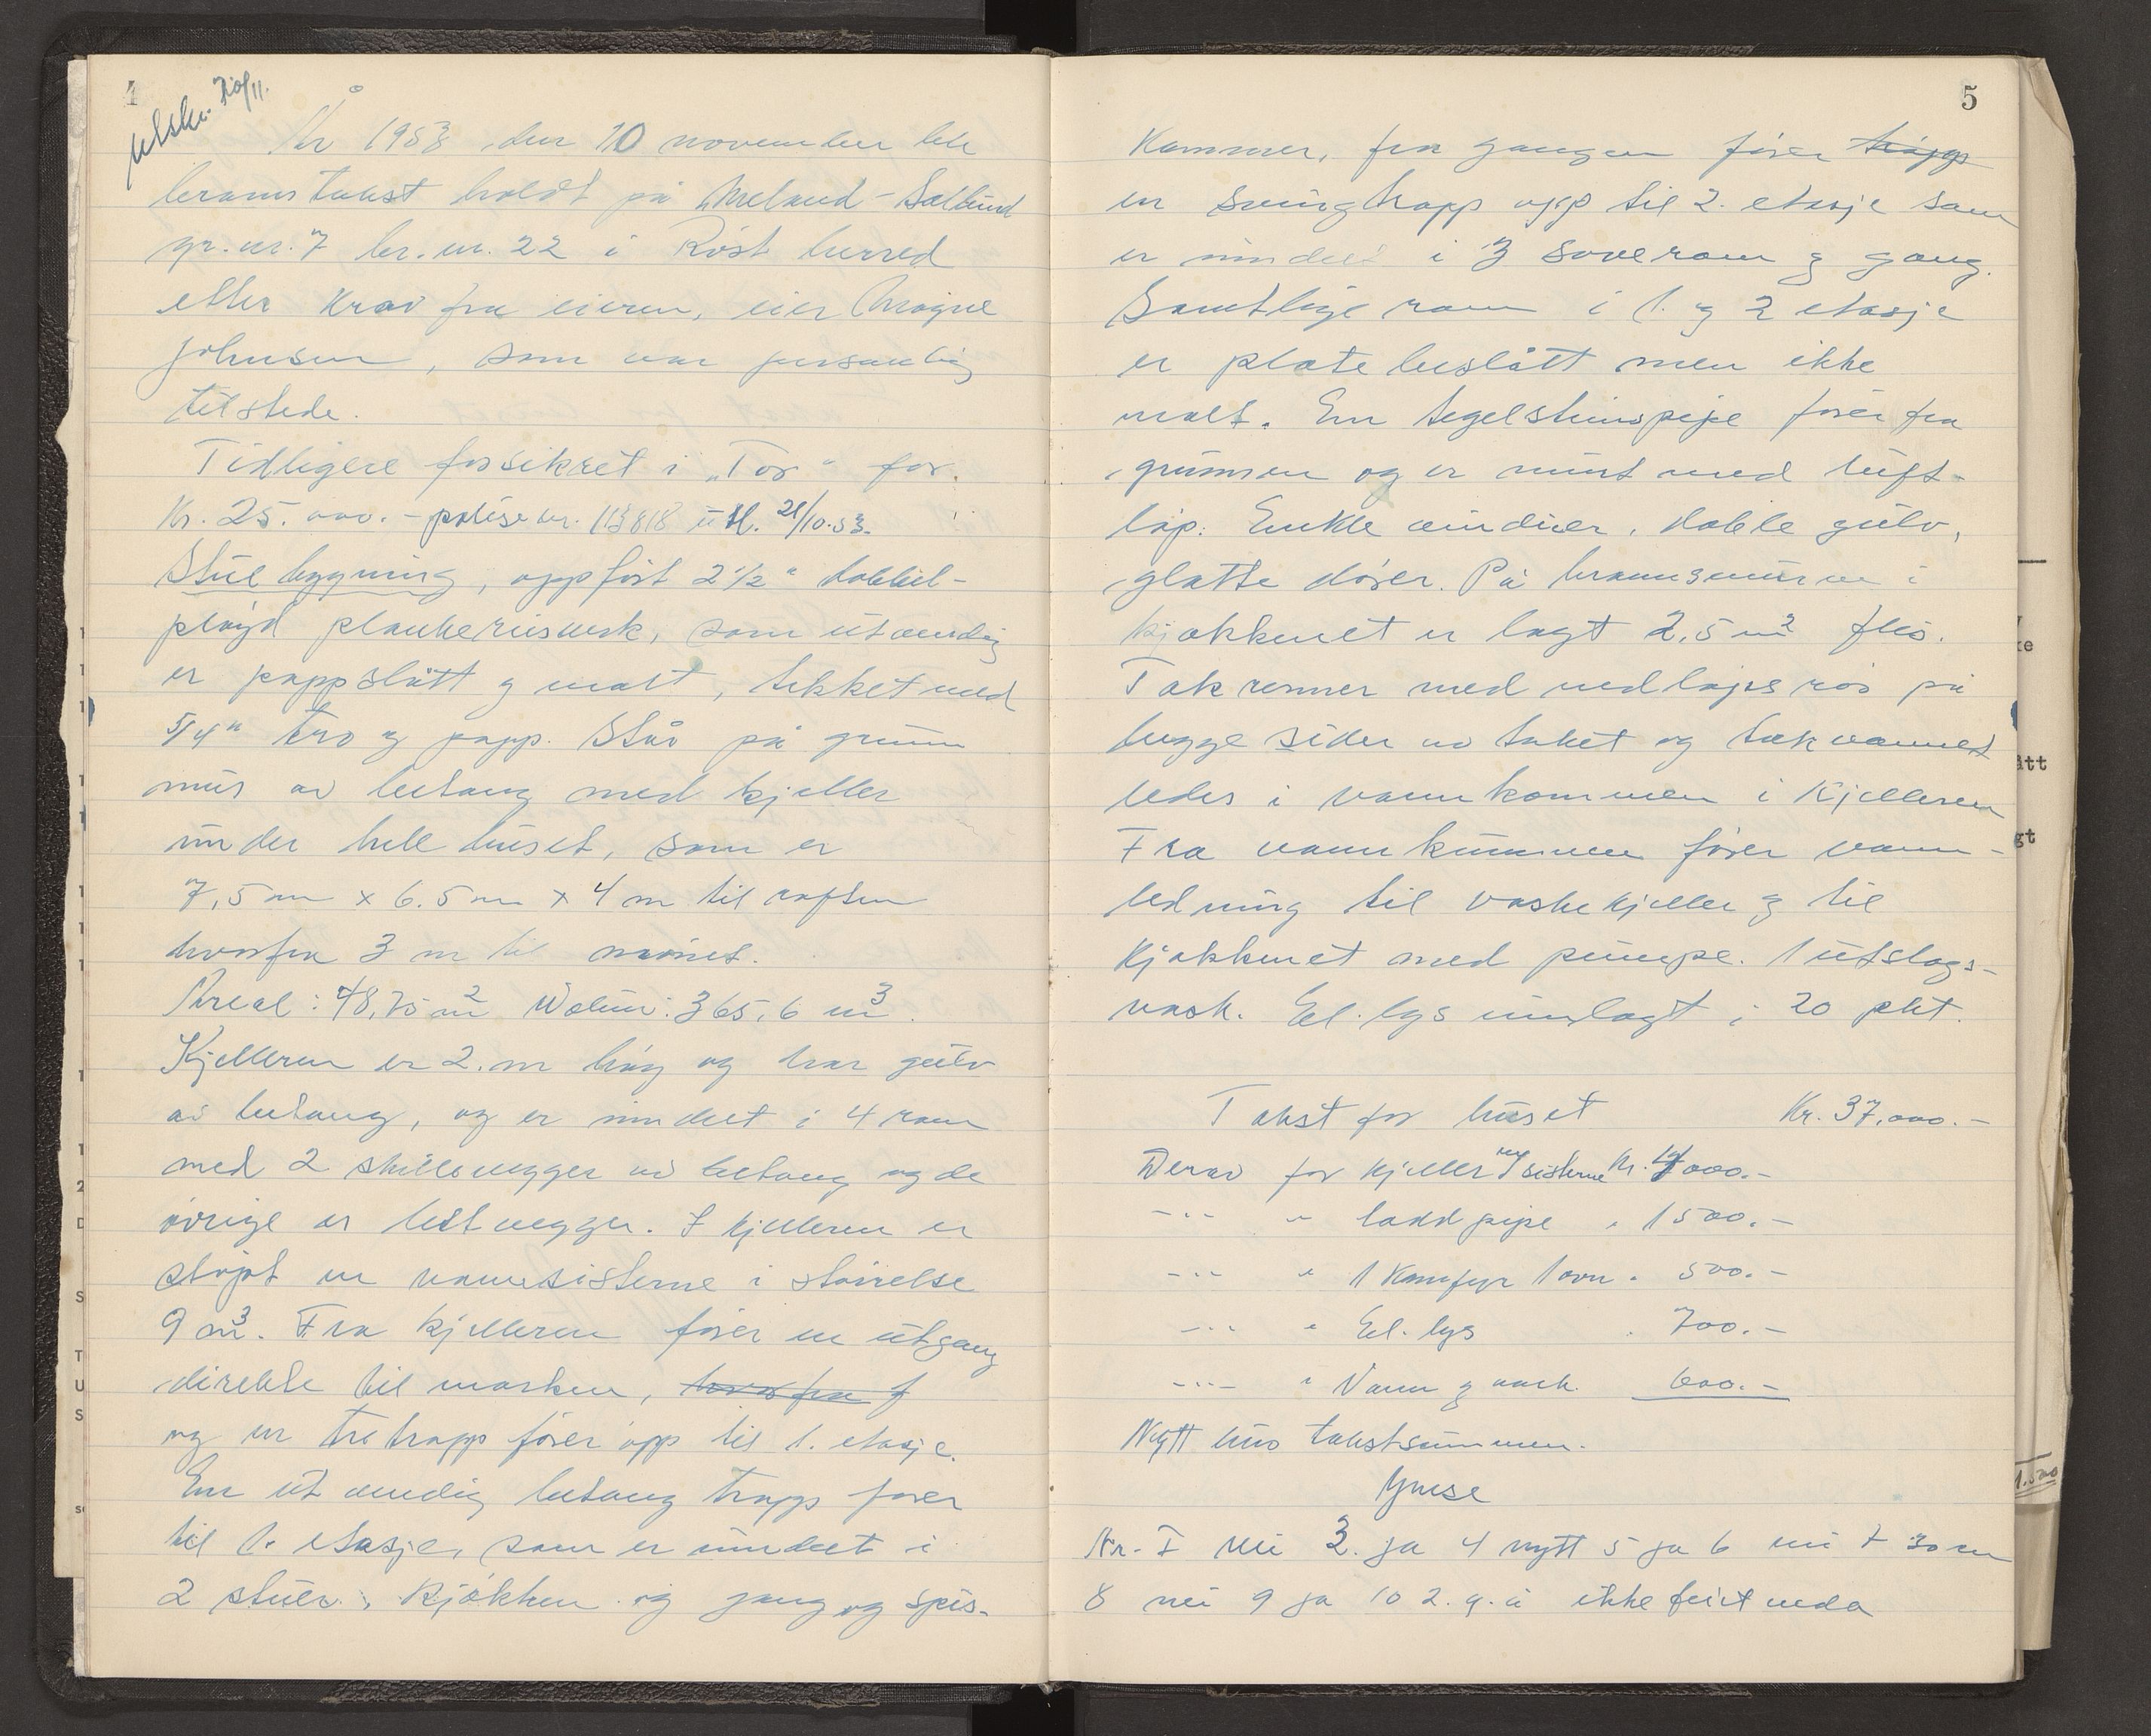 4
utskr. 20/11.
År 1953 den 10 november ble
branntakst holdt på Meland-Solbund
gr.nr. 7 br.nr. 22 i Røst herred
etter krav fra eieren, eier Magne
Johnsen, som var personlig
tilstede.
Tidligere forsikret i "Tor" for
Kr. 25.000.- polise nr. 113818 utl. 21/10.53.
Stuebygning, oppført 2½" dobbel-
pløyd plankereisverk, som utvendig
er pappslått og malt, tekket med
5/4" tro og papp. Står på grunn
mur av betong med kjeller
under hele huset, som er
7,5 m x 6.5 m x 4 m til raften
hvorfra 3 m til mønet.
Areal: 48,75 m² Volum: 365,6 m³.
Kjelleren er 2. m høy og har gulv
av betong, og er inndelt i 4 rom
med 2 skillevegger av betong og de
øvrige er lettvegger. I kjelleren er
støpt en vannsisterne i størrelse
9 m³. Fra kjelleren fører en utgang
direkte til marken, hvorfra f
og en tretrapp fører opp til 1. etasje.
En utvendig betong trapp fører
til 1. etasje, som er inndelt i
2 stuer, kjøkken og gang og spis-
5
kammer, fra gangen fører trapp
en svingtrapp opp til 2. etasje som
er inndelt i 3 soverom og gang.
Samtlige rom i 1. og 2 etasje
er platebeslått men ikke
malt. En tegelsteinspipe fører fra
grunnen og er murt med luft-
løp. Enkle vinduer, doble gulv,
glatte dører. På brannmuren i
kjøkkenet er lagt 2,5 m² flis.
Takrenner med nedløpsrør på
begge sider av taket og takvannet
ledes i vannkommen i kjelleren
Fra vannkummen fører vann-
ledning til vaskekjeller og til
kjøkkenet med pumpe. 1 utslags-
vask. El. lys innlagt i 20 pkt.
Takst for huset Kr. 37.000.-
Derav for kjeller m/sisterne Kr. 14000.-
-"- " ladd pipe " 1500.-
-"- " 1 komfyr 1 ovn " 500.-
-"- " El. lys " 700.-
-"- " Vann og vask 600.-
Nytt hus takstsummen.
Ymse
Nr. 1 nei 3. ja 4 nytt 5 ja 6 nei 7 30 cm
8 nei 9 ja 10 2. g. å ikke feiet enda